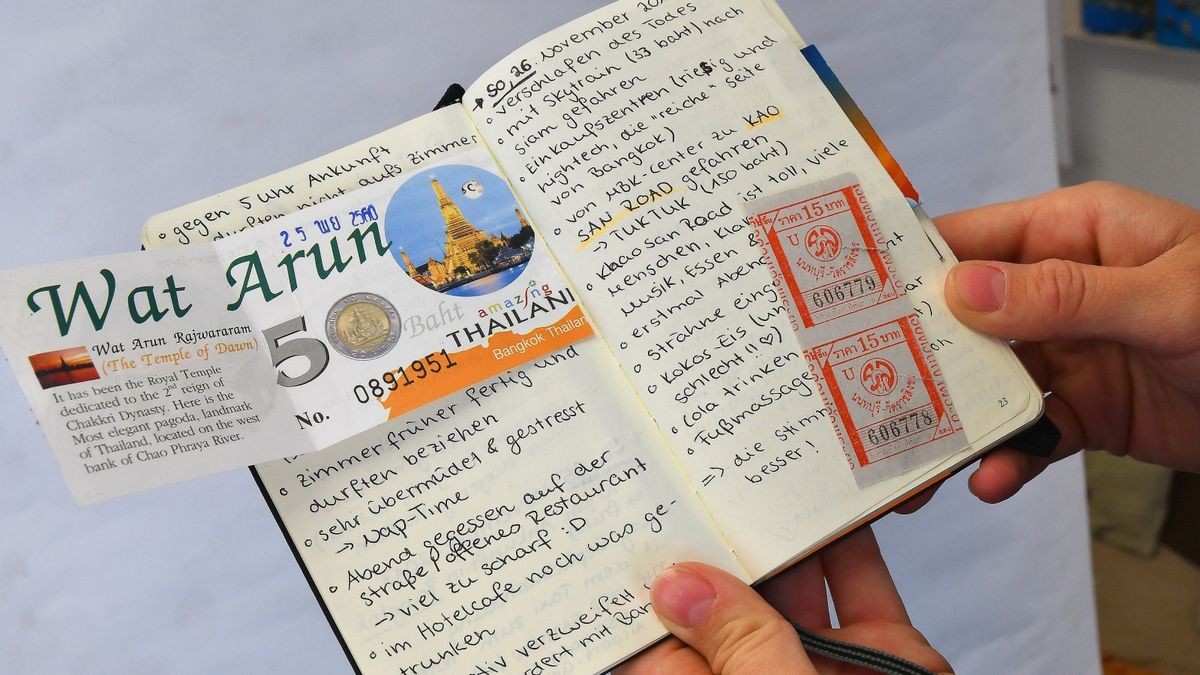 • gegen 5 Uhr Ankunft
nicht aufs Zimmer
25 พย 2560
Wat Arun
Wat Arun Rajwararam
(The Temple of Dawn)
It has been the Royal Temple
dedicated to the 2nd reign of
Chakkri Dynasty. Here is the
Most elegant pagoda, landmark
of Thailand, located on the west
bank of Chao Phraya River.
50
Baht
amazing
THAILAND
Bangkok Thailand
No. 0891951
zimmer früher fertig und
durften beziehen
• sehr übermüdet & gestresst
→ Nap-Time
• Abend gegessen auf der
straße / offenes Restaurant
→ viel zu scharf :D
• im Hotelcafe noch was ge-
trunken
verzweifelt
mit
→ SO, 26. November
• verschlafen des Todes
• mit Skytrain (33 baht) nach
Siam gefahren
• Einkaufszentren (riesig und
hightech, die "reiche" seite
von Bangkok)
• von MBK-Center zu KAO
SAN ROAD gefahren
→ TUKTUK (150 baht)
• Khao san Road ist toll, viele
Menschen,
Musik, Essen &
• erstmal
strähne
• Kokos-Eis
schlecht!! ♡)
• Cola trinken
• Fußmassage
=> die Stimm
besser!
ราคา 15 บาท
ป
นนทบุรี-วัดราชสิงขร
606779
ราคา 15 บาท
ป
นนทบุรี-วัดราชสิงขร
606778
23